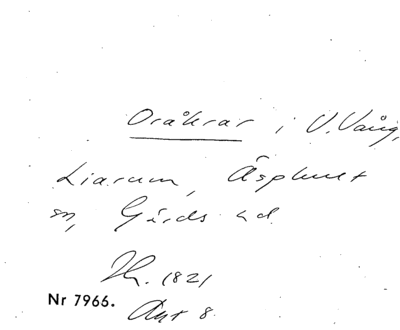 Oråkrar i V. Vång,
Liarum, Äsphult
sn, Gärds hd.
Th. 1821
Nr 7966.
Akt 8.